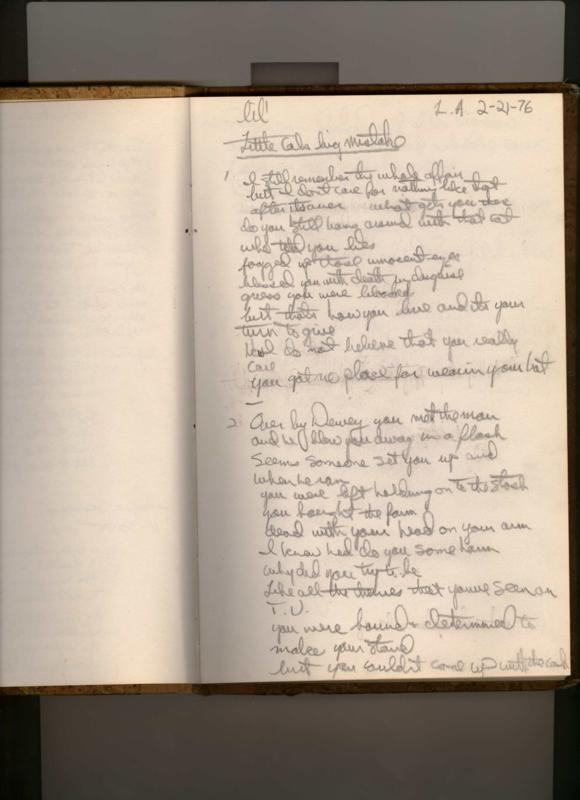 lil'
L.A. 2-21-76
Little Cabs big mistake
1 I still remember the whole affair
but I don't care for nothing like that
after its over what gets you there
do you still hang around with that cat
who told you lies
fogged up those innocent eyes
blessed you with death in disguise
guess you were blessed
but thats how you live and its your
turn to give
do not believe that you really
care
you got no place for wearin your hat
2 Over by Dewey you met the man
and he blew you away in a flash
Seems someone set you up and
when he ran
you were left holding on to the stash
you bought the farm
dead with your head on your arm
I know he'd do you some harm
why did you try to be
Like all the themes that you've seen on
T.V.
you were bound & determined to
make your stand
but you couldn't come up with the cash